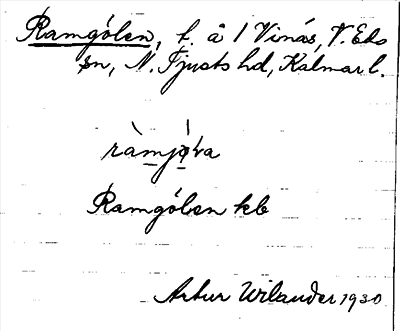 Ramgölen, f. å 1 Vinäs, V. Eds
sn, N. Tjusts hd, Kalmar l.
ràmjö́va
Ramgölen kb
Artur Wilander 1930